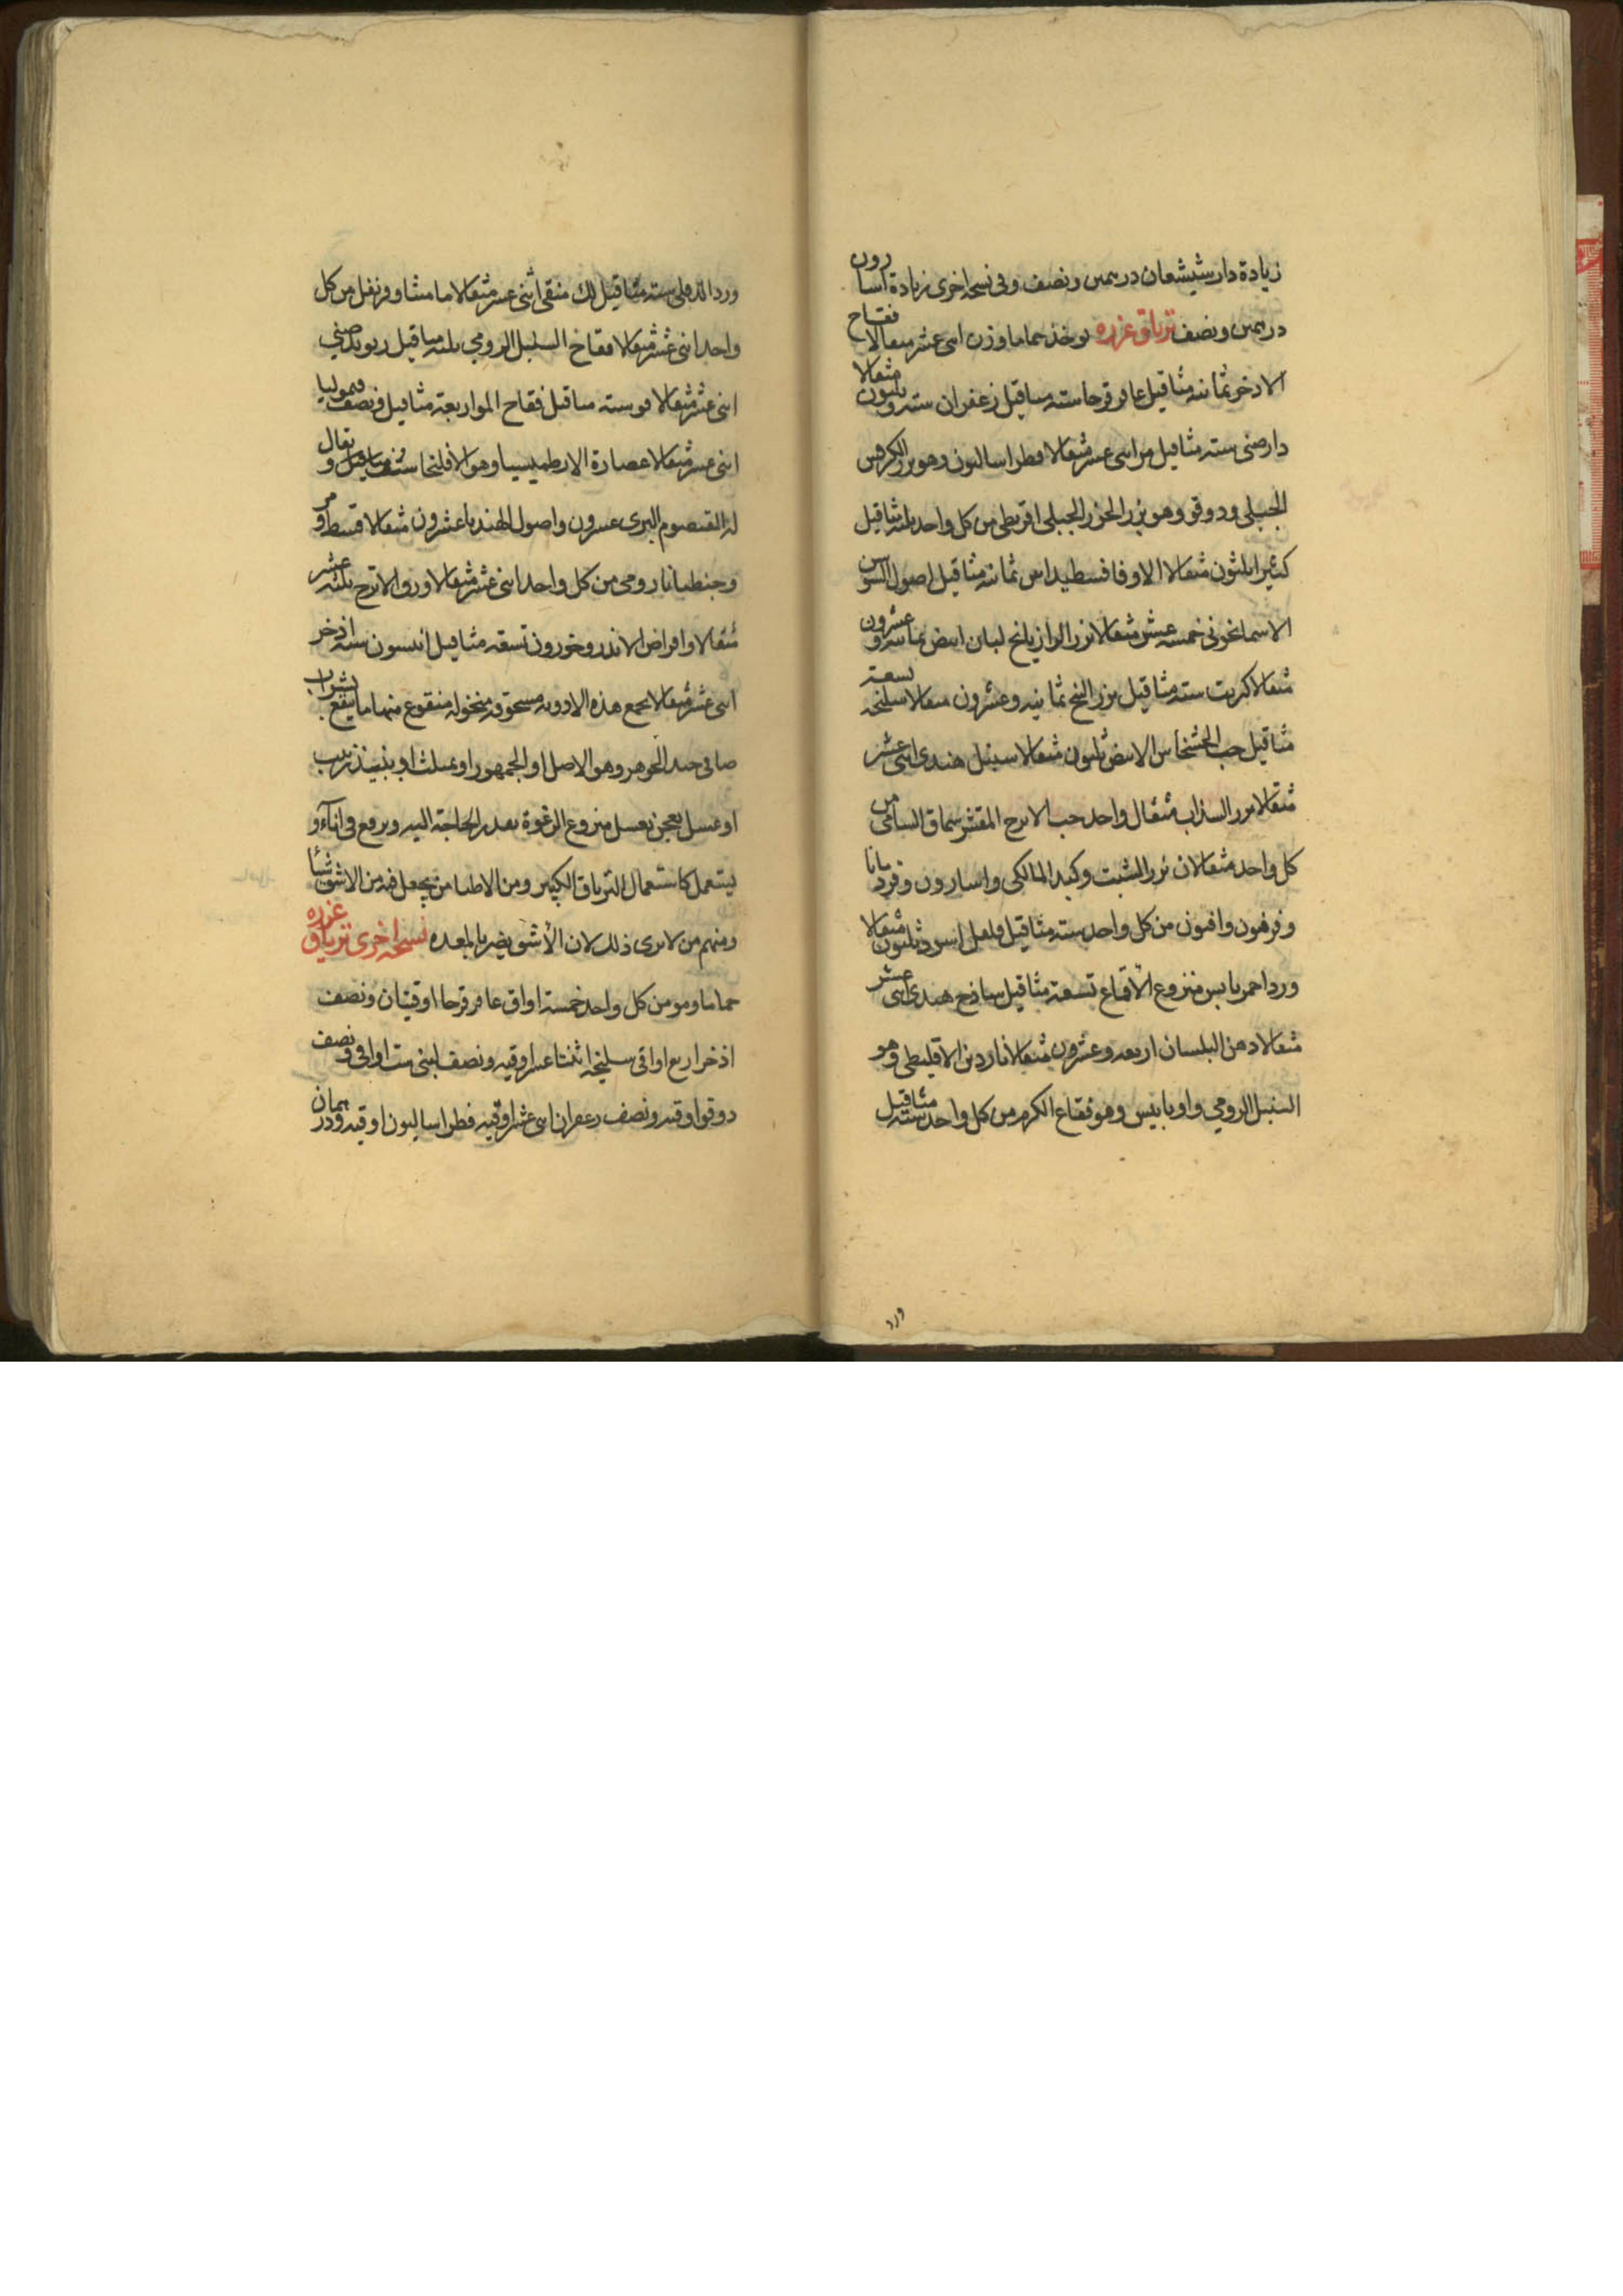 زيادة دارشيشعان درهمين ونصف وفي نسخة اخرى زيادة اسارون
درهمين ونصف ترياق عزره يوخذ حماما وزن اثنى عشر مثقالا فقاح
الاذخر ثمانية مثاقيل عاقرقرحا ستة مثاقيل زعفران ستة وثلثون مثقالا
دارصينى ستة مثاقيل مر اثنى عشر مثقالا فطراساليون وهو بزر الكرفس
الجبلى ودوقو وهو بزر الجزر الجبلى اقريطى من كل واحد ثلثة مثاقيل
كثيرا ثلثون مثقالا الاوفاقسطيداس ثمانية مثاقيل اصول السوسن
الاسمانجونى خمسة عشر مثقالا بزر الرازيانج لبان ابيض ثمانية وعشرون
مثقالا كبريت ستة مثاقيل بزر البنج ثمانية وعشرون مثقالا سليخة تسعة
مثاقيل حب الخشخاش الابيض ثلثون مثقالا سنبل هندى اثنى عشر
مثقالا بزر السذاب مثقال واحد حب الاترج المقشر سماق الشامى من
كل واحد مثقالان بزر الشبت وكبد المالكى واسارون وقردمانا
وفرفيون وافيون من كل واحد ستة مثاقيل فلفل اسود ثلثون مثقالا
ورد احمر يابس منزوع الاقماع تسعة مثاقيل ساذج هندى اثنى عشر
مثقالا دهن البلسان اربعة وعشرون مثقالا ناردين الاقليطى وهو
السنبل الرومي واوبابيس وهو فقاع الكرم من كل واحد ستة مثاقيل
ورد
ورد الدفلى ستة مثاقيل لك منقى اثنى عشر مثقالا مامشا وقرنفل من كل
واحد اثنى عشر مثقالا فقاخ السنبل الرومي ثلثة مثاقيل ريوند صينى
اثنى عشر مثقالا مو ستة مثاقيل فقاح المو اربعة مثاقيل ونصف قيموليا
اثنى عشر مثقالا عصارة الارطميسيا وهو الافلنجا ستة مثاقيل ونصف ويقال
له القيصوم البرى عشرون واصول الهندبا عشرون مثقالا قسط مر
وجنطيانا رومي من كل واحد اثنى عشر مثقالا ورق الاترج ثلثة عشر
مثقالا واقراص الاندروخورون تسعة مثاقيل انيسون ستة اذخر
اثنى عشر مثقالا يجمع هذه الادوية مسحوقة منخولة منقوع منها ما ينقع بشراب
صافى جيد الجوهر وهو الاصل او الجمهورا وبمثلث او بنبيذ زبيب
او عسل يعجن بعسل منزوع الرغوة بقدر الحاجة اليه ويرفع فى اناء و
يستعمل كاستعمال الترياق الكبير ومن الاطبا من يجعل فيه من الاشق شيئا
ومنهم من لا يرى ذلك لان الأشق يضر بالمعده نسخة اخرى ترياق عزره
حماما ومو من كل واحد خمسة اواق عاقرقرحا اوقيتان ونصف
اذخر اربع اواقى سليخة اثنتا عشر اوقيه ونصف لبنى ست اواقى ونصف
دوقوا اوقيه ونصف زعفران اثنى عشر اوقيه فطراساليون اوقيه ودرهمان